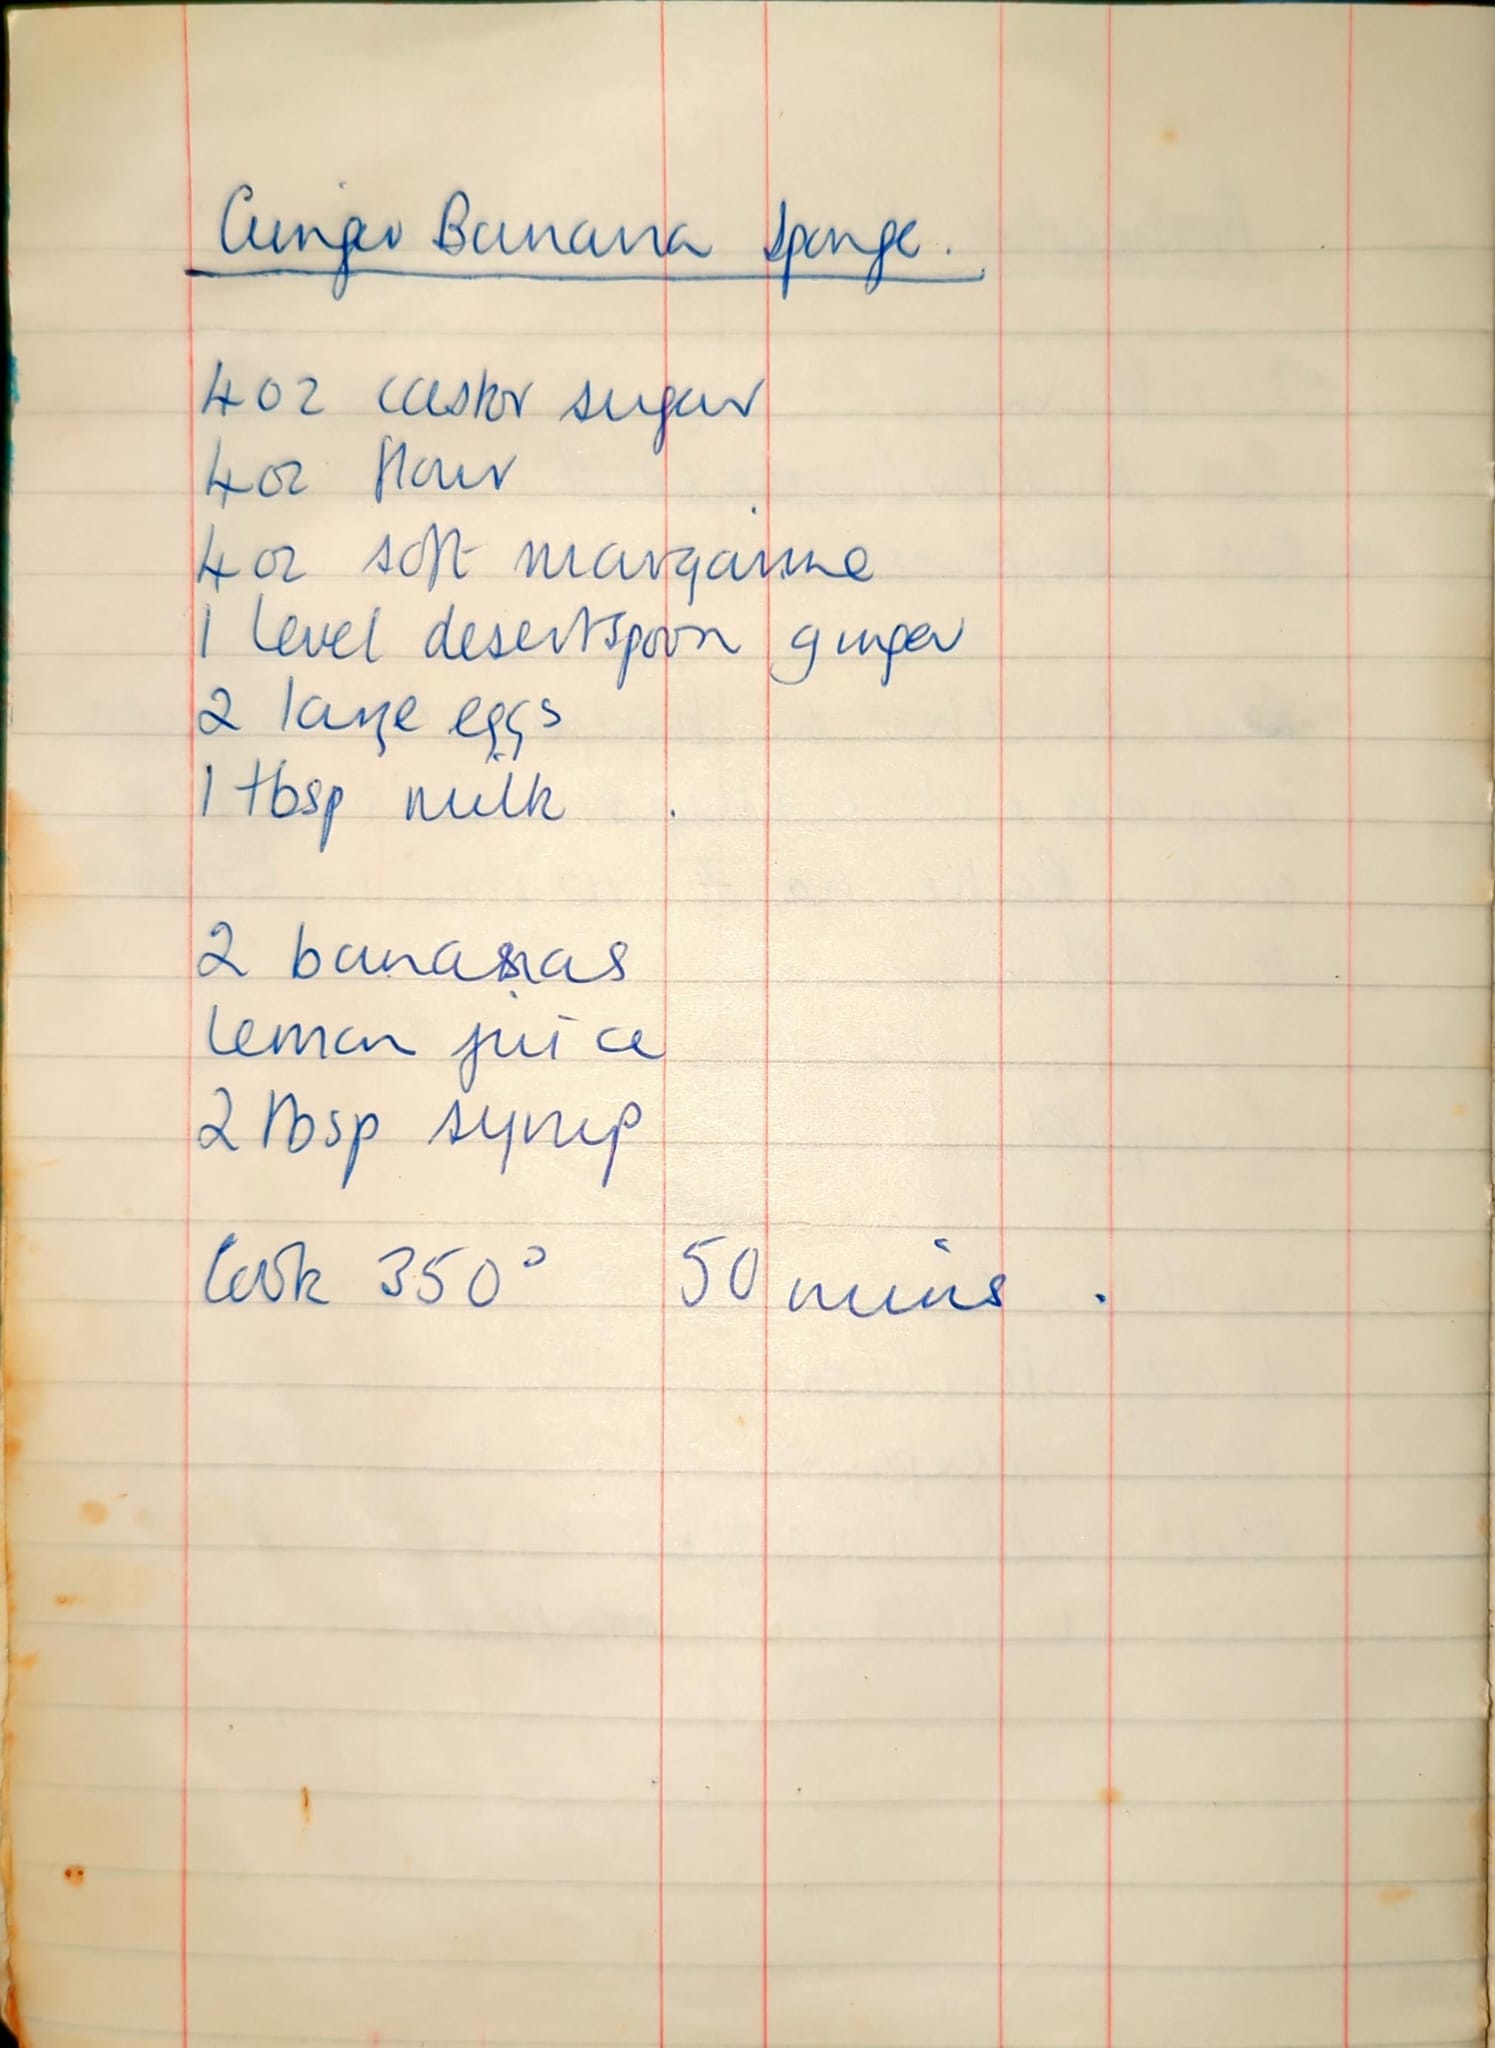 Ginger Banana Sponge.
4 oz castor sugar
4 oz flour
4 oz soft margarine
1 level desertspoon ginger
2 large eggs
1 tbsp milk
2 bananas
lemon juice
2 tbsp syrup
Cook 350° 50 mins.